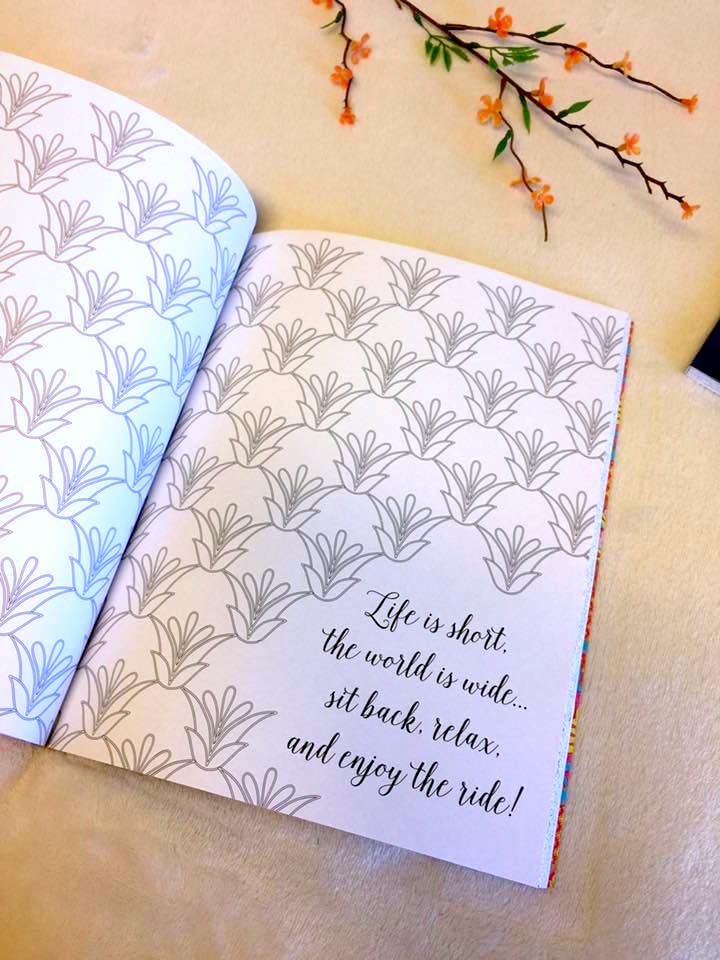 Life is short,
the world is wide...
sit back, relax,
and enjoy the ride!